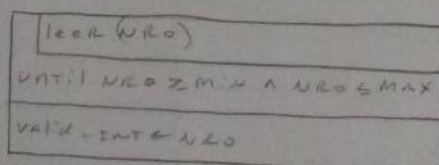 leer (NRO)
UNTIL NRO ≥ MIN ∧ NRO ≤ MAX
VALID-INT ← NRO